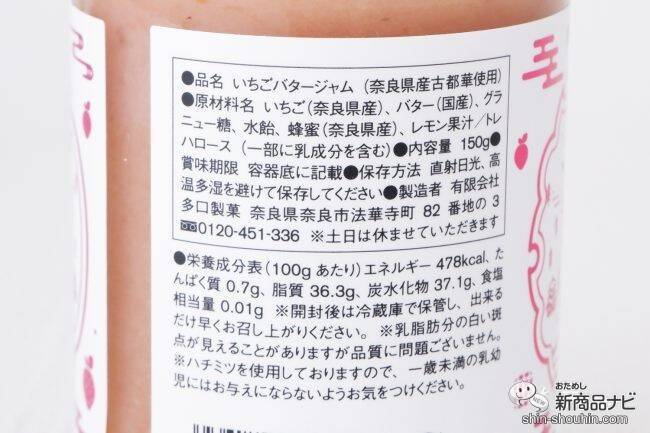 ●品名 いちごバタージャム（奈良県産古都華使用）
●原材料名 いちご（奈良県産）、バター（国産）、グラ
ニュー糖、水飴、蜂蜜（奈良県産）、レモン果汁／トレ
ハロース（一部に乳成分を含む）●内容量 150g●
賞味期限 容器底に記載●保存方法 直射日光、高
温多湿を避けて保存してください●製造者 有限会社
多口製菓 奈良県奈良市法華寺町 82 番地の 3
0120-451-336 ※土日は休ませていただきます
●栄養成分表（100gあたり）エネルギー 478kcal、たん
ぱく質 0.7g、脂質 36.3g、炭水化物 37.1g、食塩
相当量 0.01g ※開封後は冷蔵庫で保管し、出来る
だけ早くお召し上がりください。※乳脂肪分の白い斑
点が見えることがありますが品質に問題ございません。
※ハチミツを使用しておりますので、一歳未満の乳幼
児にはお与えにならないようお気をつけください。
おためし
新商品ナビ
shin-shouhin.com